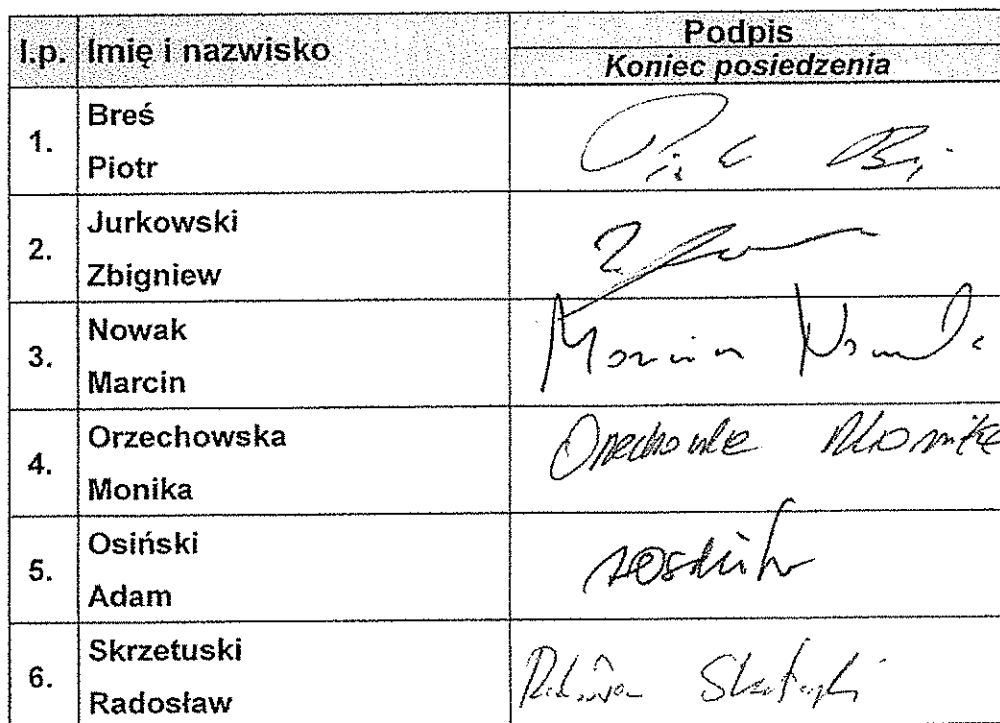 l.p. Imię i nazwisko Podpis
Koniec posiedzenia
1. Breś
Piotr
2. Jurkowski
Zbigniew
3. Nowak
Marcin
Marcin Nowak
4. Orzechowska
Monika
Orzechowska Monika
5. Osiński
Adam
6. Skrzetuski
Radosław
Radosław Skrzetuski